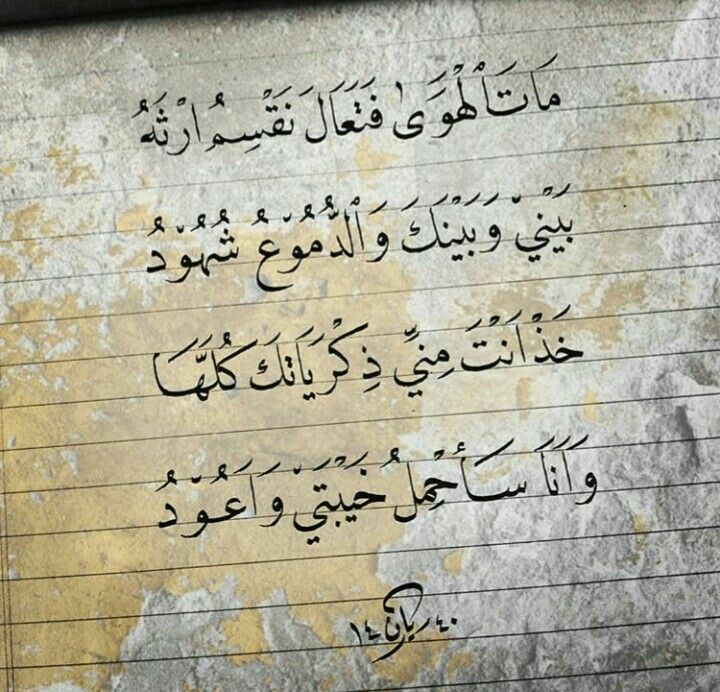 مَاتَ ٱلْهَوَىٰ فَتَعَالَ نَقْسِمُ ارْثَهُ
بَيْنِيْ وَبَيْنَكَ وَٱلدُّمُوْعُ شُهُوْدُ
خَذْ انْتَ مِنِّيْ ذِكْرَيَاتَكَ كُلَّهَا
وَاَنَا سَأَحْمِلُ خَيْبَتِيْ وَاَعُوْدُ